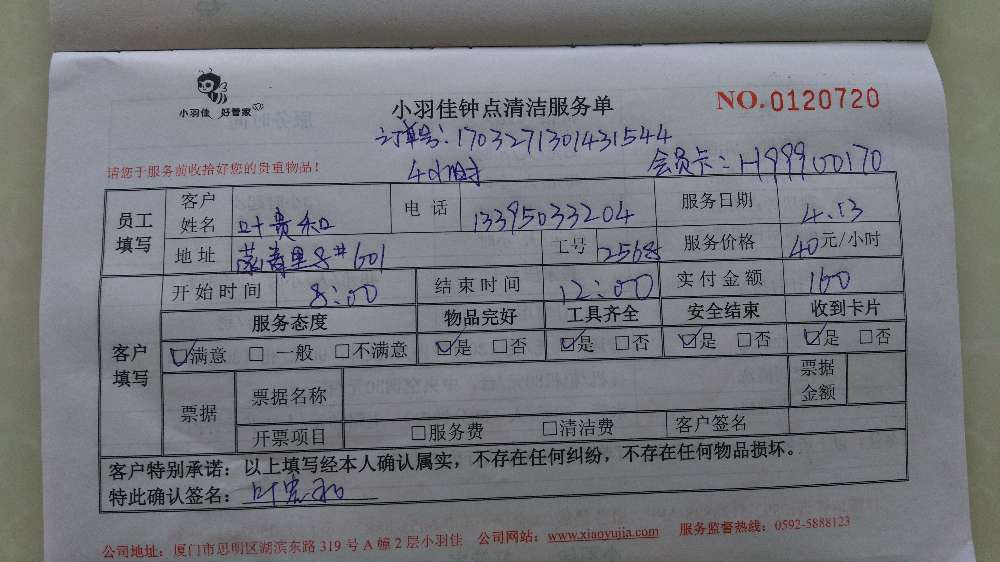 小羽佳 好管家
小羽佳钟点清洁服务单
NO.0120720
订单号：1703271301431544
请您于服务前收拾好您的贵重物品！
4小时
会员卡：H99900170
员工填写
客户姓名 叶贵和 电话 13395033204 服务日期 4.13
地址 8#601 工号 2568 服务价格 40元/小时
客户填写
开始时间 8:00 结束时间 12:00 实付金额 160
服务态度 物品完好 工具齐全 安全结束 收到卡片
☑满意 □一般 □不满意 ☑是 □否 ☑是 □否 ☑是 □否 ☑是 □否
票据 票据名称 票据金额
开票项目 □服务费 □清洁费 客户签名
客户特别承诺：以上填写经本人确认属实，不存在任何纠纷，不存在任何物品损坏。
特此确认签名：叶贵和
公司地址：厦门市思明区湖滨东路319号A幢2层小羽佳 公司网站：www.xiaoyujia.com 服务监督热线：0592-5888123